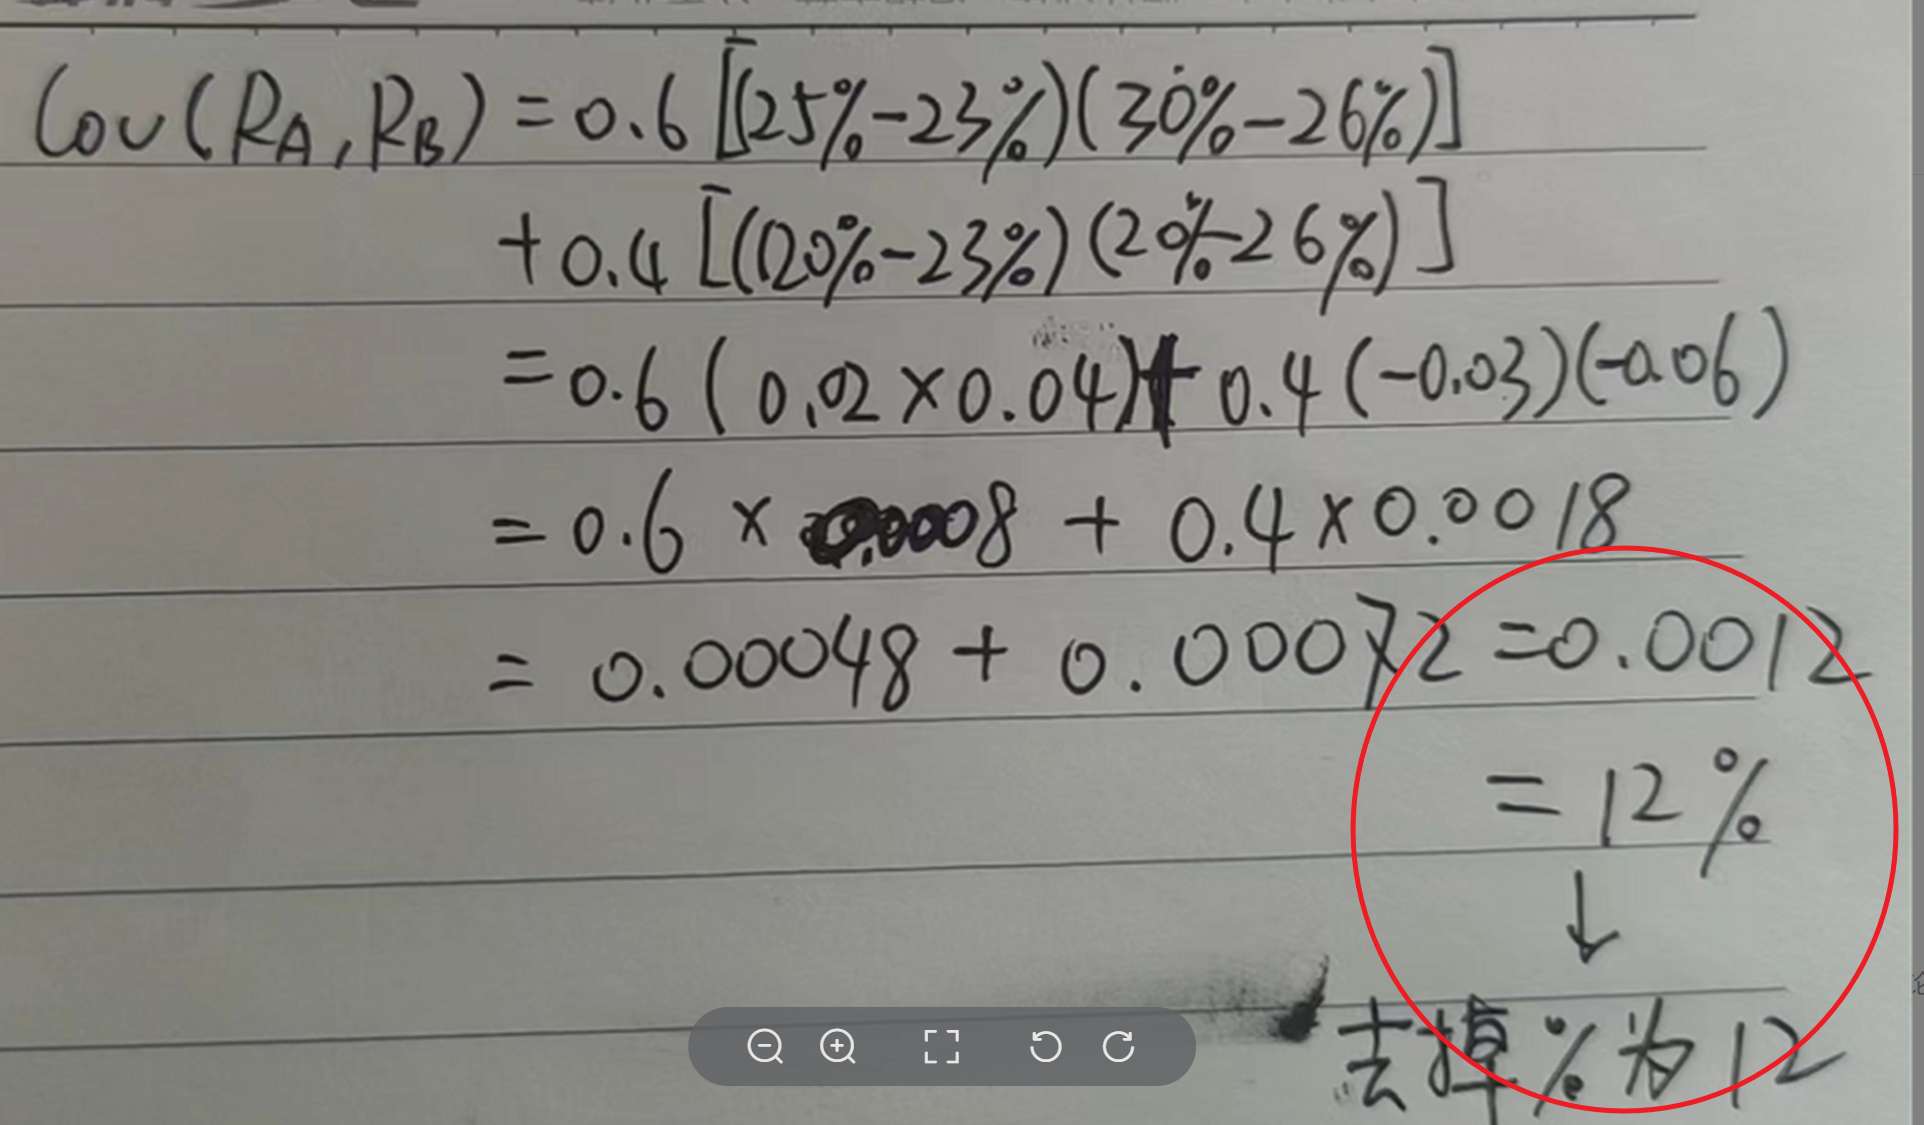 Cov(RA,RB)=0.6[(25%-23%)(30%-26%)]
+0.4[(20%-23%)(20%-26%)]
=0.6(0.02×0.04)+0.4(-0.03)(-0.06)
=0.6×0.0008+0.4×0.0018
=0.00048+0.00072=0.0012
=12%
↓
去掉%为12